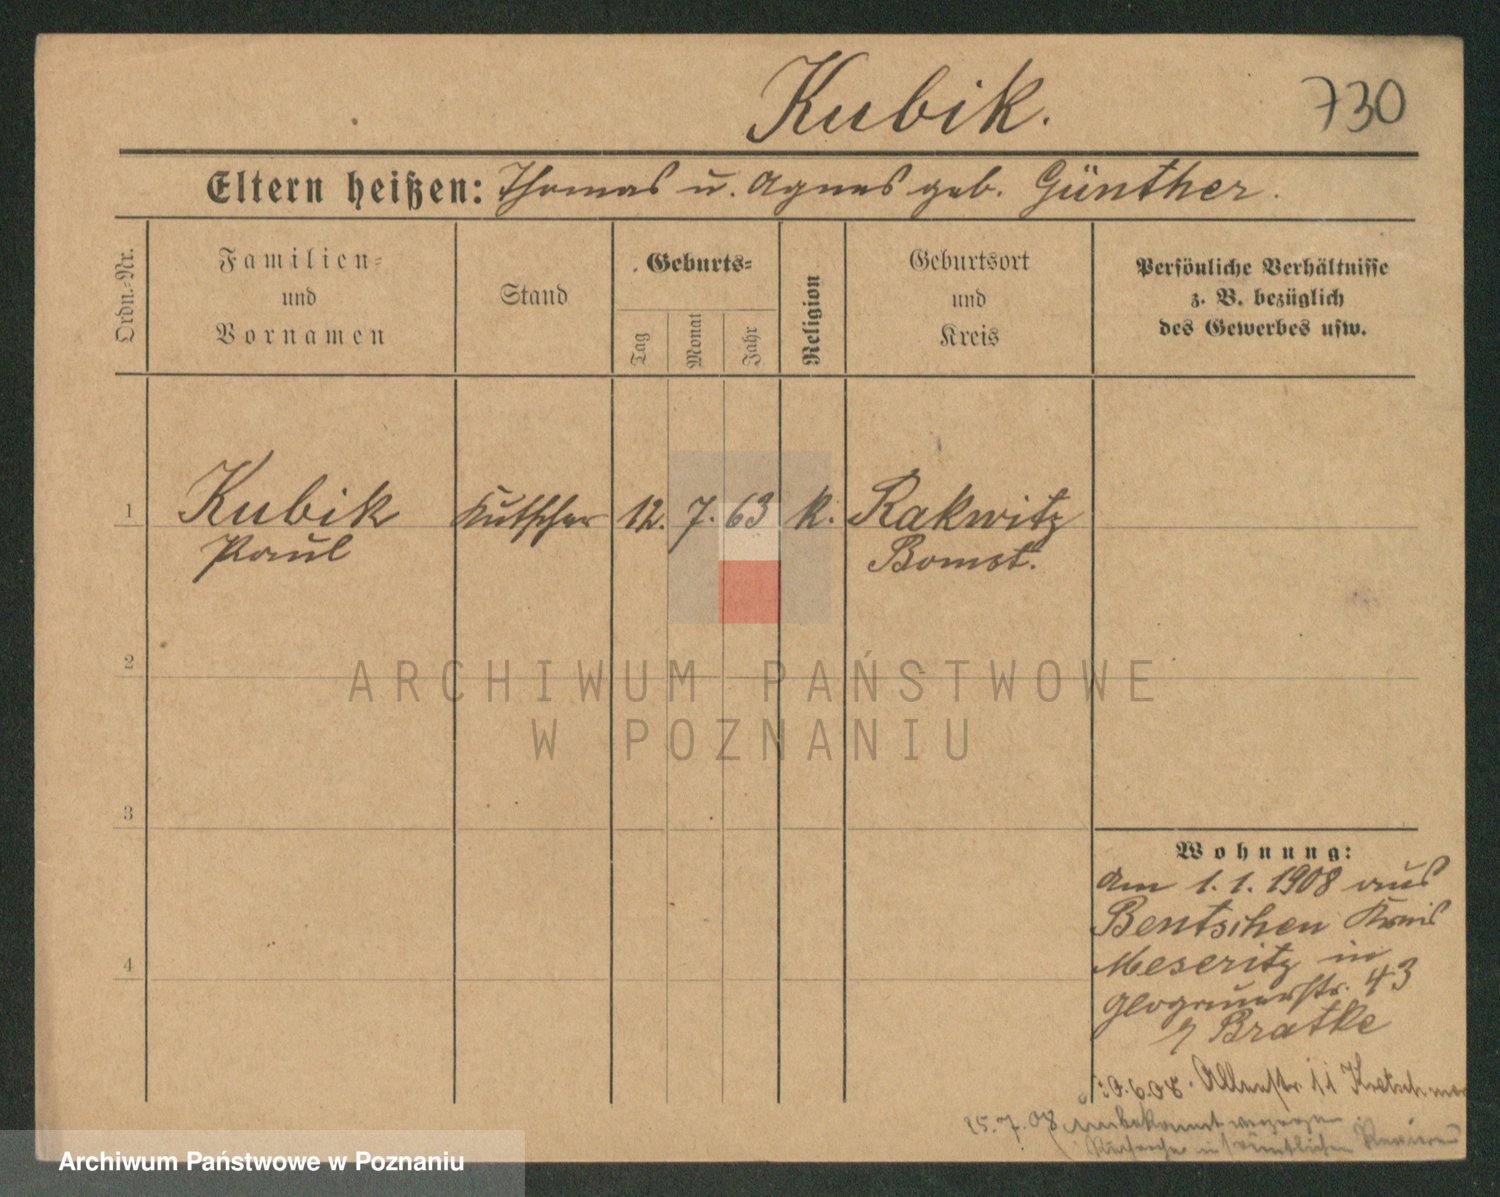 Kubik.
730
Eltern heißen: Thomas u. Agnes geb. Günther.
Ordn.-Nr.
Familien-
und
Vornamen
Stand
Geburts-
Tag
Monat
Jahr
Religion
Geburtsort
und
Kreis
Persönliche Verhältnisse
z. B. bezüglich
des Gewerbes usw.
1
Kubik Kutscher 12. 7. 63 K. Rakwitz
Paul Bomst.
2
ARCHIWUM PAŃSTWOWE
W POZNANIU
3
Wohnung:
am 1.1.1908 aus
Bentschen Kreis
Meseritz in
4
Glogauerstr. 43
Bratke
6.08. 11 Kretschmer
25.7.08 Unbekannt verzogen
in sämtlichen Revieren
Archiwum Państwowe w Poznaniu